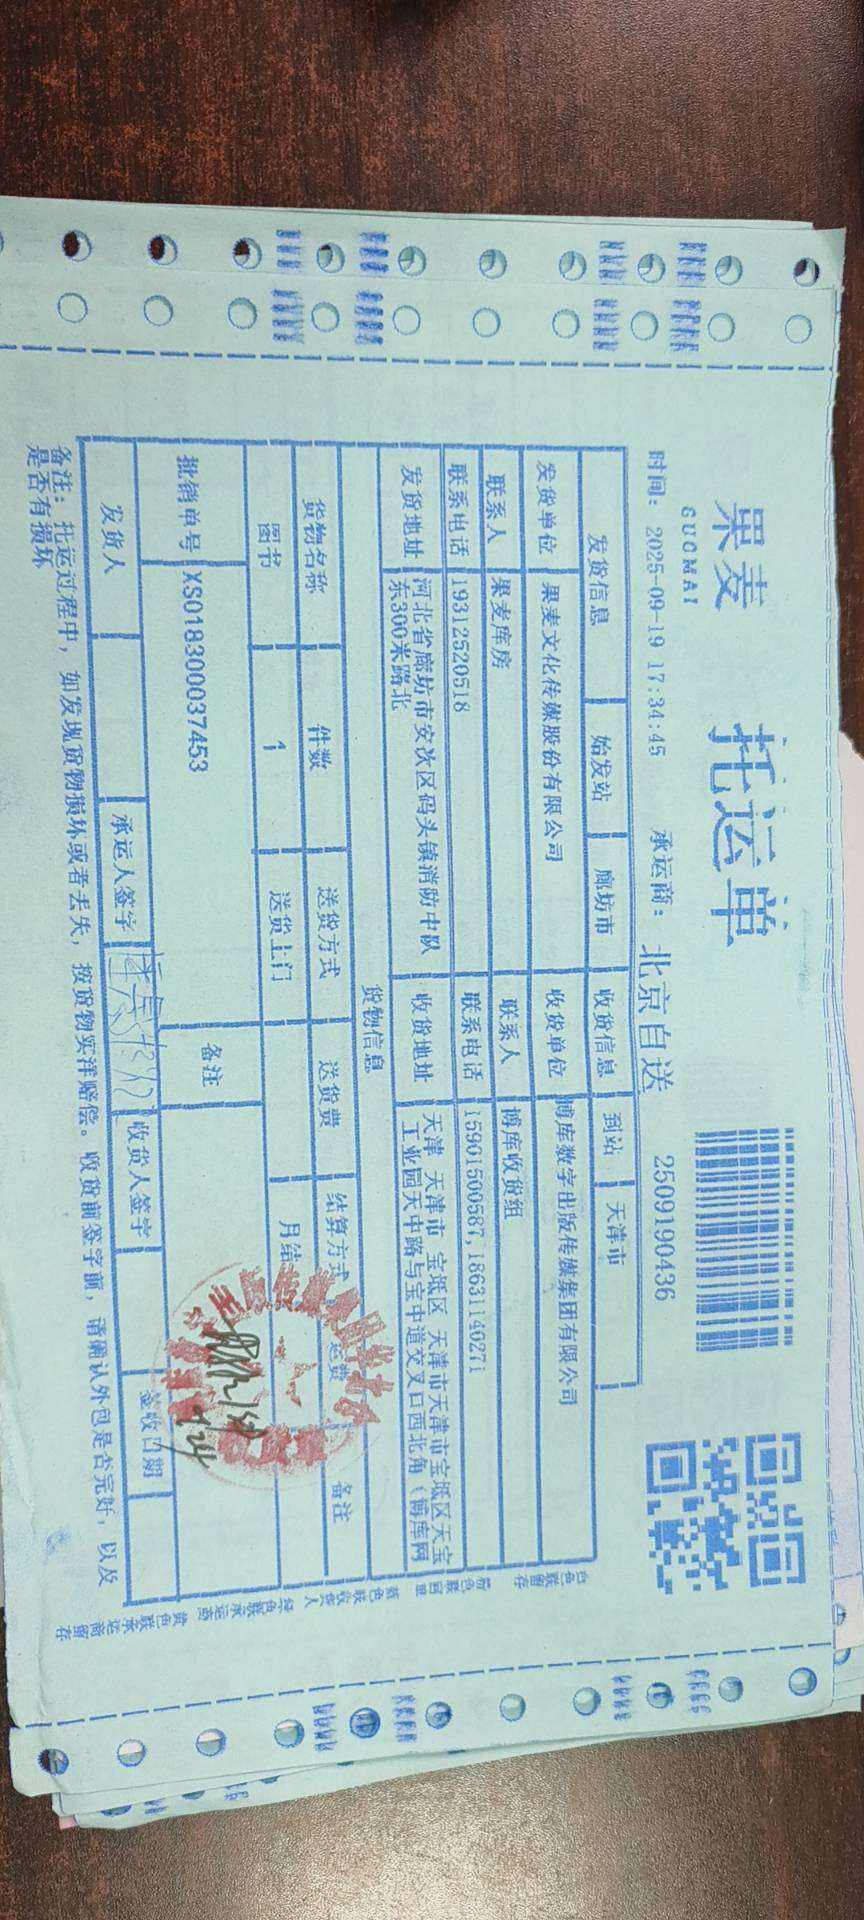 果麦
GUOMAI
托运单
时间： 2025-09-19 17:34:45 承运商： 北京自送 2509190436
发货信息 始发站 廊坊市 收货信息 到站 天津市
发货单位 果麦文化传媒股份有限公司 收货单位 博库数字出版传媒集团有限公司
联系人 果麦库房 联系人 博库收货组
联系电话 19312520518 联系电话 15901500587,18631140271
发货地址 河北省廊坊市安次区码头镇消防中队
东300米路北
收货地址 天津 天津市 宝坻区 天津市天津市宝坻区天宝
工业园天中路与宝中道交叉口西北角（博库网
货物信息
货物名称 件数 送货方式 送货费 结算方式 运费 备注
图书 1 送货上门 月结
批销单号 XS018300037453 备注
发货人 承运人签字 收货人签字 签收日期
备注：托运过程中，如发现货物损坏或者丢失，按货物实洋赔偿。收货前签字前，请确认外包是否完好，以及
是否有损坏
白色联留存
粉色联回单
蓝色联收货人
绿色联承运商
黄色联承运商留存